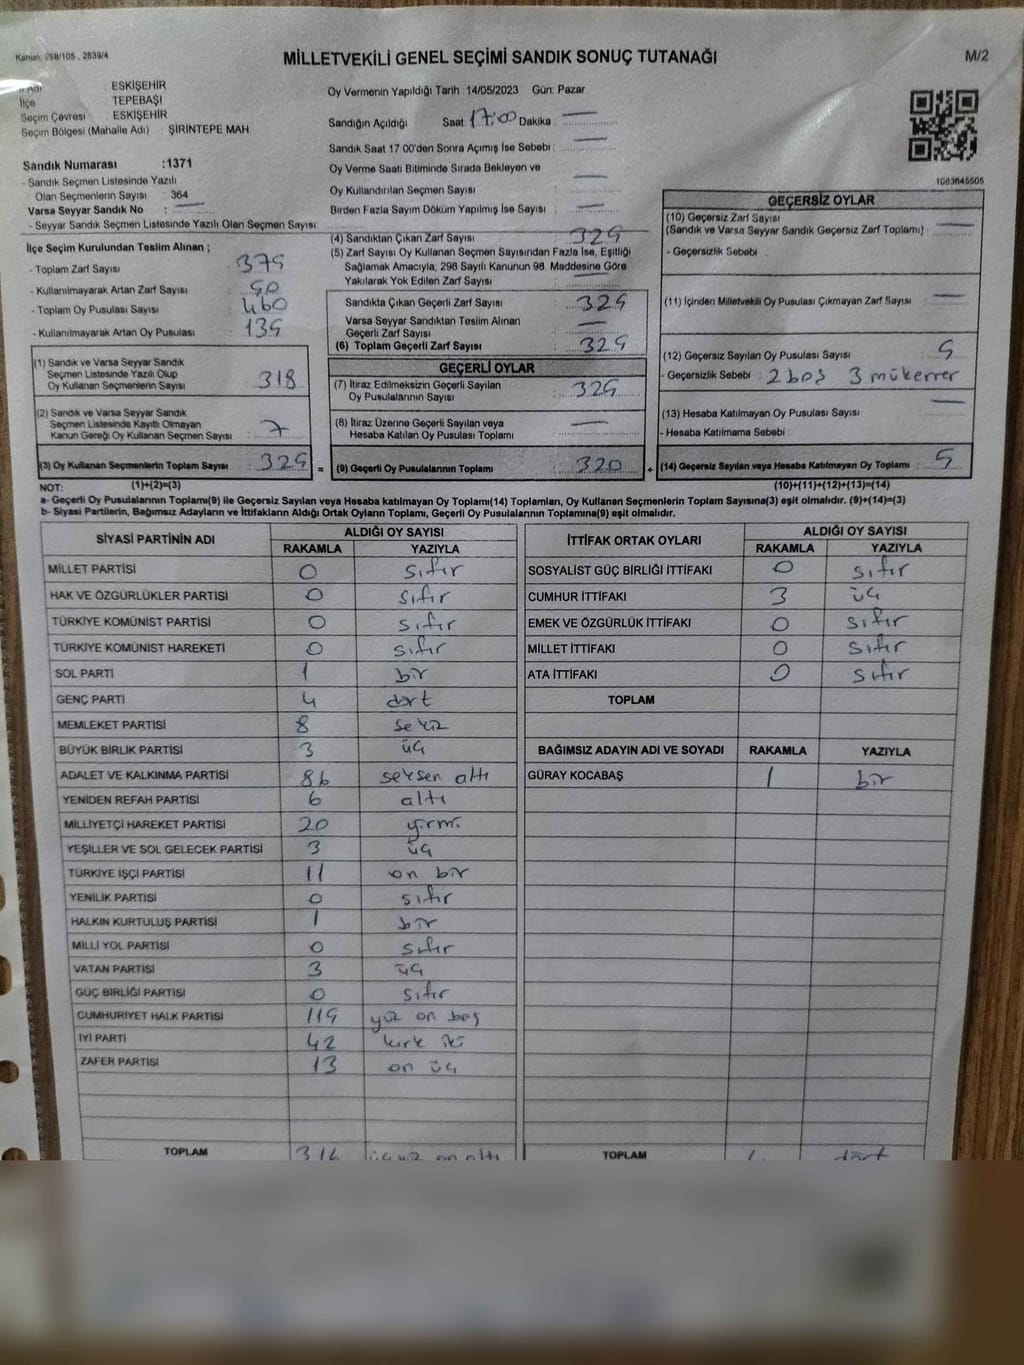 Kanun: 298/105 , 2839/4
MİLLETVEKİLİ GENEL SEÇİMİ SANDIK SONUÇ TUTANAĞI
M/2
İl Adı : ESKİŞEHİR
İlçe : TEPEBAŞI
Seçim Çevresi : ESKİŞEHİR
Seçim Bölgesi (Mahalle Adı) : ŞİRİNTEPE MAH.
Sandık Numarası :1371
- Sandık Seçmen Listesinde Yazılı
Olan Seçmenlerin Sayısı : 364
Varsa Seyyar Sandık No : —
- Seyyar Sandık Seçmen Listesinde Yazılı Olan Seçmen Sayısı:
Oy Vermenin Yapıldığı Tarih :14/05/2023 Gün: Pazar
Sandığın Açıldığı Saat 17:00 Dakika : —
Sandık Saat 17:00'den Sonra Açımış İse Sebebi : —
Oy Verme Saati Bitiminde Sırada Bekleyen ve
Oy Kullandırılan Seçmen Sayısı : —
Birden Fazla Sayım Döküm Yapılmış İse Sayısı : —
1063645505
İlçe Seçim Kurulundan Teslim Alınan ;
- Toplam Zarf Sayısı : 375
- Kullanılmayarak Artan Zarf Sayısı : 50
- Toplam Oy Pusulası Sayısı : 460
- Kullanılmayarak Artan Oy Pusulası : 135
(1) Sandık ve Varsa Seyyar Sandık
Seçmen Listesinde Yazılı Olup
Oy Kullanan Seçmenlerin Sayısı : 318
(2) Sandık ve Varsa Seyyar Sandık
Seçmen Listesinde Kayıtlı Olmayan
Kanun Gereği Oy Kullanan Seçmen Sayısı : 7
(3) Oy Kullanan Seçmenlerin Toplam Sayısı : 325
(4) Sandıktan Çıkan Zarf Sayısı : 325
(5) Zarf Sayısı Oy Kullanan Seçmen Sayısından Fazla İse, Eşitliği
Sağlamak Amacıyla, 298 Sayılı Kanunun 98. Maddesine Göre
Yakılarak Yok Edilen Zarf Sayısı : —
Sandıkta Çıkan Geçerli Zarf Sayısı : 325
Varsa Seyyar Sandıktan Teslim Alınan
Geçerli Zarf Sayısı : —
(6) Toplam Geçerli Zarf Sayısı : 325
GEÇERLİ OYLAR
(7) İtiraz Edilmeksizin Geçerli Sayılan
Oy Pusulalarının Sayısı : 325
(8) İtiraz Üzerine Geçerli Sayılan veya
Hesaba Katılan Oy Pusulası Toplamı : —
= (9) Geçerli Oy Pusulalarının Toplamı : 320
GEÇERSİZ OYLAR
(10) Geçersiz Zarf Sayısı
(Sandık ve Varsa Seyyar Sandık Geçersiz Zarf Toplamı) : —
- Geçersizlik Sebebi :
(11) İçinden Milletvekili Oy Pusulası Çıkmayan Zarf Sayısı : —
(12) Geçersiz Sayılan Oy Pusulası Sayısı : 5
- Geçersizlik Sebebi : 2 boş 3 mükerrer
(13) Hesaba Katılmayan Oy Pusulası Sayısı : —
- Hesaba Katılmama Sebebi :
+ (14) Geçersiz Sayılan veya Hesaba Katılmayan Oy Toplamı : 5
NOT: (1)+(2)=(3) (10)+(11)+(12)+(13)=(14)
a- Geçerli Oy Pusulalarının Toplamı(9) ile Geçersiz Sayılan veya Hesaba katılmayan Oy Toplamı(14) Toplamları, Oy Kullanan Seçmenlerin Toplam Sayısına(3) eşit olmalıdır. (9)+(14)=(3)
b- Siyasi Partilerin, Bağımsız Adayların ve İttifakların Aldığı Ortak Oyların Toplamı, Geçerli Oy Pusulalarının Toplamına(9) eşit olmalıdır.
SİYASİ PARTİNİN ADI ALDIĞI OY SAYISI
RAKAMLA YAZIYLA
MİLLET PARTİSİ 0 sıfır
HAK VE ÖZGÜRLÜKLER PARTİSİ 0 sıfır
TÜRKİYE KOMÜNİST PARTİSİ 0 sıfır
TÜRKİYE KOMÜNİST HAREKETİ 0 sıfır
SOL PARTİ 1 bir
GENÇ PARTİ 4 dört
MEMLEKET PARTİSİ 8 sekiz
BÜYÜK BİRLİK PARTİSİ 3 üç
ADALET VE KALKINMA PARTİSİ 86 seksen altı
YENİDEN REFAH PARTİSİ 6 altı
MİLLİYETÇİ HAREKET PARTİSİ 20 yirmi
YEŞİLLER VE SOL GELECEK PARTİSİ 3 üç
TÜRKİYE İŞÇİ PARTİSİ 11 on bir
YENİLİK PARTİSİ 0 sıfır
HALKIN KURTULUŞ PARTİSİ 1 bir
MİLLİ YOL PARTİSİ 0 sıfır
VATAN PARTİSİ 3 üç
GÜÇ BİRLİĞİ PARTİSİ 0 sıfır
CUMHURİYET HALK PARTİSİ 115 yüz on beş
İYİ PARTİ 42 kırk iki
ZAFER PARTİSİ 13 on üç
TOPLAM 316 üçyüz on altı
İTTİFAK ORTAK OYLARI ALDIĞI OY SAYISI
RAKAMLA YAZIYLA
SOSYALİST GÜÇ BİRLİĞİ İTTİFAKI 0 sıfır
CUMHUR İTTİFAKI 3 üç
EMEK VE ÖZGÜRLÜK İTTİFAKI 0 sıfır
MİLLET İTTİFAKI 0 sıfır
ATA İTTİFAKI 0 sıfır
TOPLAM
BAĞIMSIZ ADAYIN ADI VE SOYADI RAKAMLA YAZIYLA
GÜRAY KOCABAŞ 1 bir
TOPLAM 4 dört